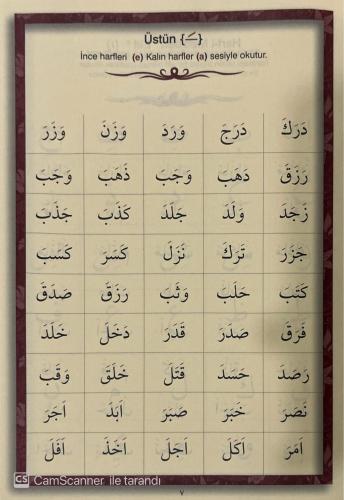 Üstün {ـَ}
İnce harfleri (e) Kalın harfler (a) sesiyle okutur.
دَرَكَ دَرَجَ وَرَدَ وَزَنَ وَزَرَ
رَزَقَ دَهَبَ وَجَبَ ذَهَبَ وَجَبَ
زَجَدَ وَلَدَ جَلَدَ كَذَبَ جَذَبَ
جَزَرَ تَرَكَ نَزَلَ كَسَرَ كَسَبَ
كَتَبَ حَلَبَ وَثَبَ رَزَقَ صَدَقَ
فَرَقَ صَدَرَ قَدَرَ دَخَلَ خَلَدَ
رَصَدَ حَسَدَ قَتَلَ خَلَقَ وَقَبَ
نَصَرَ خَبَرَ صَبَرَ اَبَدَ اَجَرَ
اَمَرَ اَكَلَ اَجَلَ اَخَذَ اَفَلَ
CS CamScanner ile tarandı
٧